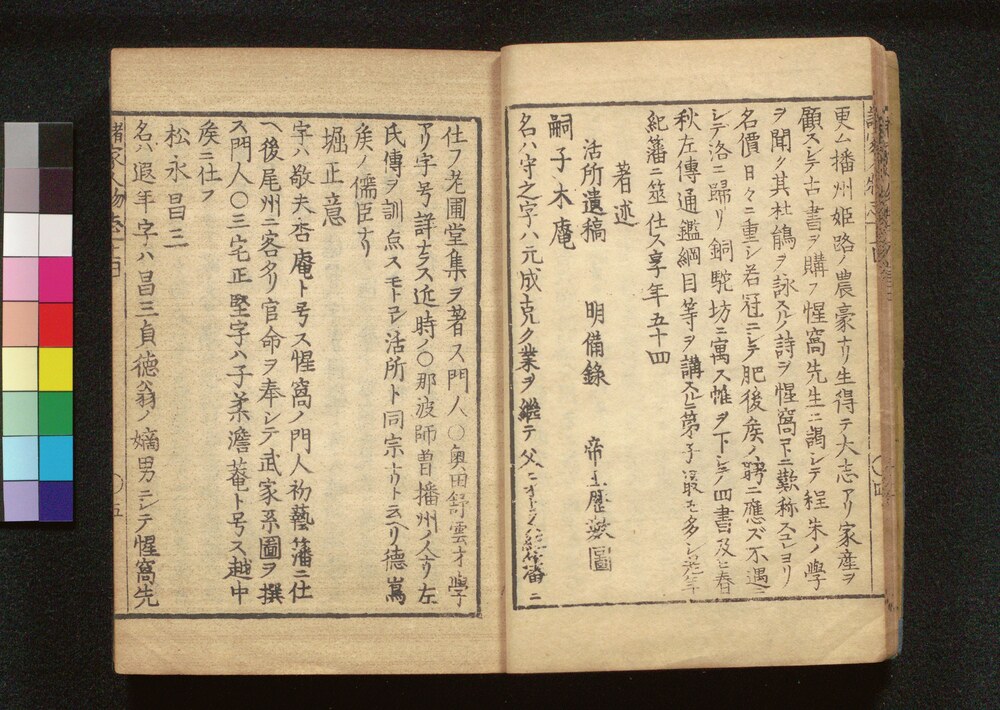 更ム播州姫路ノ農豪ナリ生得テ大志アリ家産ヲ
顧スシテ古書ヲ購フ惺窩先生ニ謁シテ程朱ノ學
ヲ聞ク其杜鵑ヲ詠スルノ詩ヲ惺窩下ニ歎称スコレヨリ
名價日々ニ重シ若冠ニシテ肥後矦ノ聘ニ應ズ不遇ニ
シテ洛ニ歸リ銅駝坊ニ寓ス帷ヲ下シテ四書及ヒ春
秋左傳通鑑綱目等ヲ講ス弟子最モ多シ
紀藩ニ筮仕ス享年五十四
著述
活所遺稿 明備錄 帝王歴數圖
嗣子木庵
名ハ守之字ハ元成克ク業ヲ繼テ父
仕フ老圃堂集ヲ著ス門人〇奥田舒雲才學
アリ字号詳ナラス近時ノ〇那波師曽播州ノ人ナリ左
氏傳ヲ訓点スモトヨリ活所ト同宗ナリト云ヘリ德嶌
矦ノ儒臣ナリ
堀正意
字ハ敬夫杏庵ト号ス惺窩ノ門人初藝藩ニ仕
ヘ後尾州ニ客タリ官命ヲ奉シテ武家系圖ヲ撰
ス門人〇三宅正堅字ハ子柔澹菴ト号ス越中
矦ニ仕フ
松永昌三
名ハ遐年字ハ昌三貞徳翁ノ嫡男ニシテ惺窩先
諸家人物志
〇五